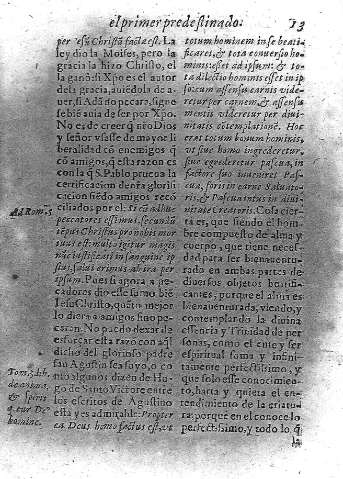 el primer predestinado.
73
per Iesũ Christũ facta est. La
ley dio la Moises, pero la
gracia la hizo Christo, el
la ganò: si Xpo es el autor
dela gracia, auiẽdola de a-
uer, si Adã no pecara, sigue
se biẽ auia de ser por Xpo.
No es de creer q̃ nr̃o Dios
y señor vsasse de mayor li
beralidad cõ enemigos q̃
cõ amigos, q̃ esta razon es
con la q̃ S. Pablo prueua la
certificacion de nr̃a glorifi
cacion siẽdo amigos reco
ciliados por el.
Ad Rom. 5.
peccatores essemus, secundũ
tẽpus Christus pro nobis mor
tuus est: multo igitur magis
nũc iustificati in sanguine ip
sius, salui erimus ab ira per
ipsum. Pues si agora a pe-
cadores dio esse sumo biẽ
Iesu Christo, quãto mejor
lo diera a amigos si no pe
caran. No puedo dexar de
esforçar esta razon con aq̃l
dicho del glorioso padre
san Agustin sea suyo, o co
mo algunos dizen de Hu-
go de Santo Victore entre
los escritos de Augustino
esta y es admirable: Propter
ea Deus homo factus est, vt
Tom. 9. lib.
de anima,
& spiritu
hominẽ.
totum hominem in se beati-
ficaret, & tota conuersio ho-
minis esset ad ipsum: & to-
ta dilectio hominis esset in ip
so: cum a sensu carnis vide-
retur per carnem, & a sensu
mentis videretur per diui-
nitatis cõtemplationẽ. Hoc
erat totum bonum hominis,
vt siue homo ingrederetur,
siue egrederetur pascua, in
factore suo inueniret Pas-
cua, foris in carne Saluato-
ris, & Pascua intus in diui-
nitate Creatoris. Cosa cier-
ta es, que siendo el hom-
bre compuesto de alma y
cuerpo, que tiene necessi
dad para ser bienauentu-
rada en ambas partes de
diuersos objetos beatifi-
cantes, porque el alma es
bienauenturada, viendo, y
contemplando la diuina
essencia y Trinidad de per
sonas, como el ente y ser
espiritual sama y infini-
tamente perfectissimo, y
que solo esse conocimien-
to, harta y quieta el en-
tendimiento de la criatu-
ra: porque en el conoce lo
perfectissimo, y todo lo q̃